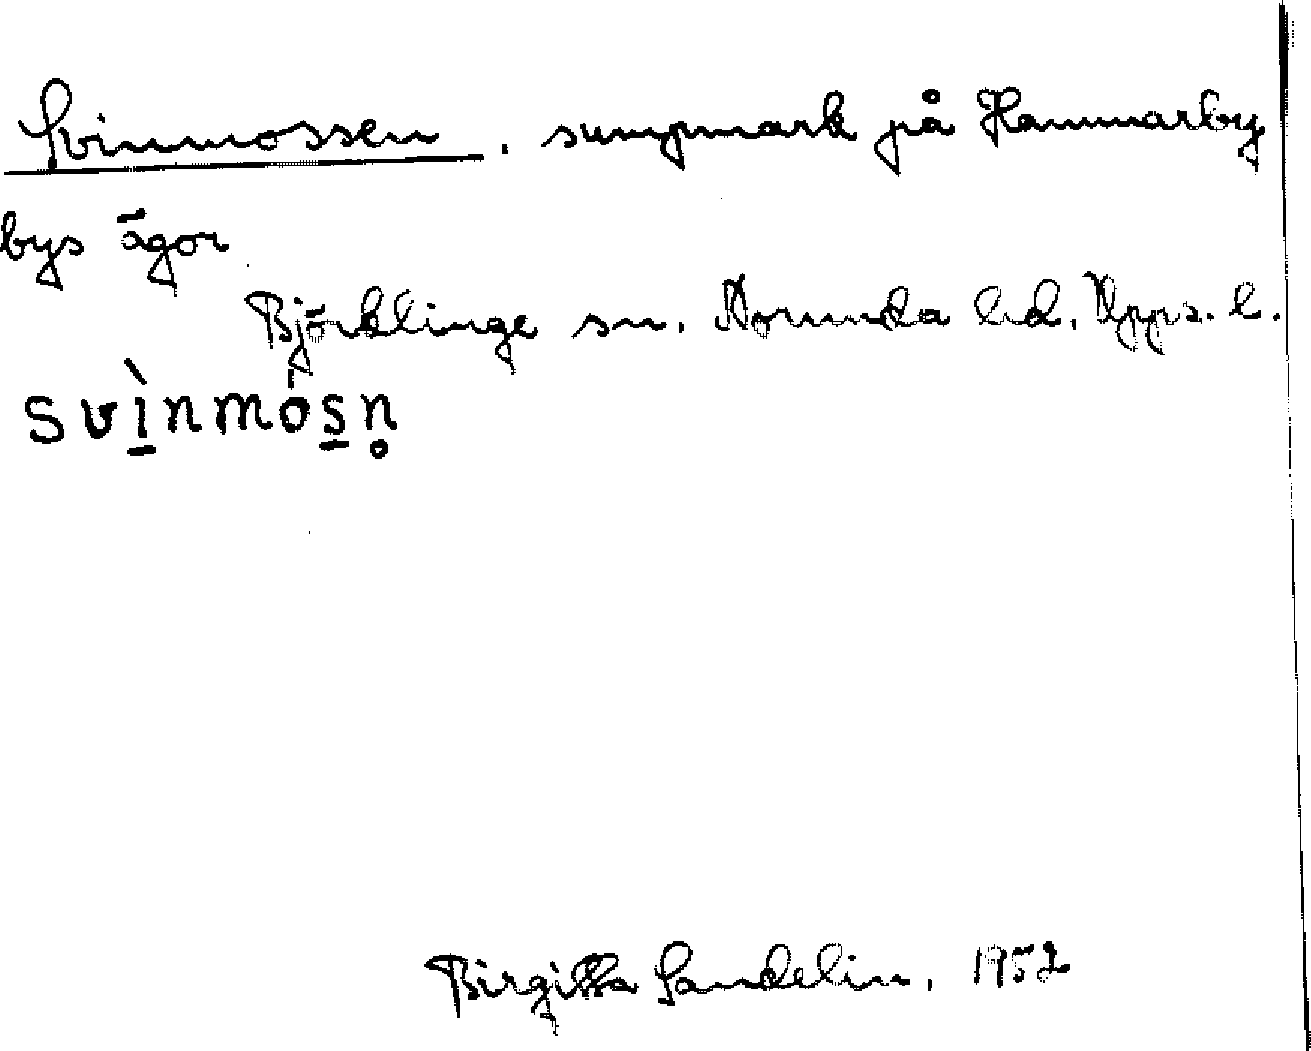 Svinmossen. sumpmark på Hammarby
bys ägor
Björklinge sn. Norunda hd. Upps. l.
svì̲nmós̲n̥
Birgitta Sandelin. 1952